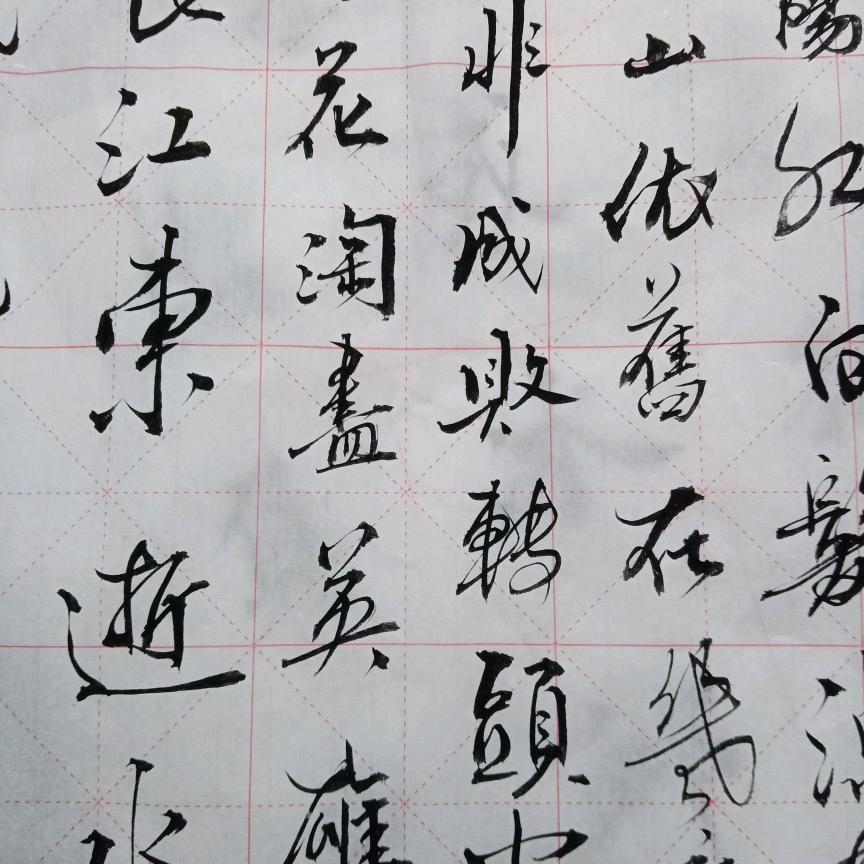 長江東逝水
花淘盡英雄
非成敗轉頭空
山依舊在幾
陽紅白髮